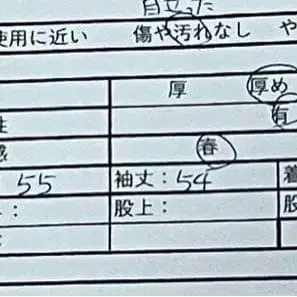 目立った
使用に近い 傷や汚れなし や
厚 厚め
性 有
感 春
55 袖丈：54 着
： 股上： 股
：